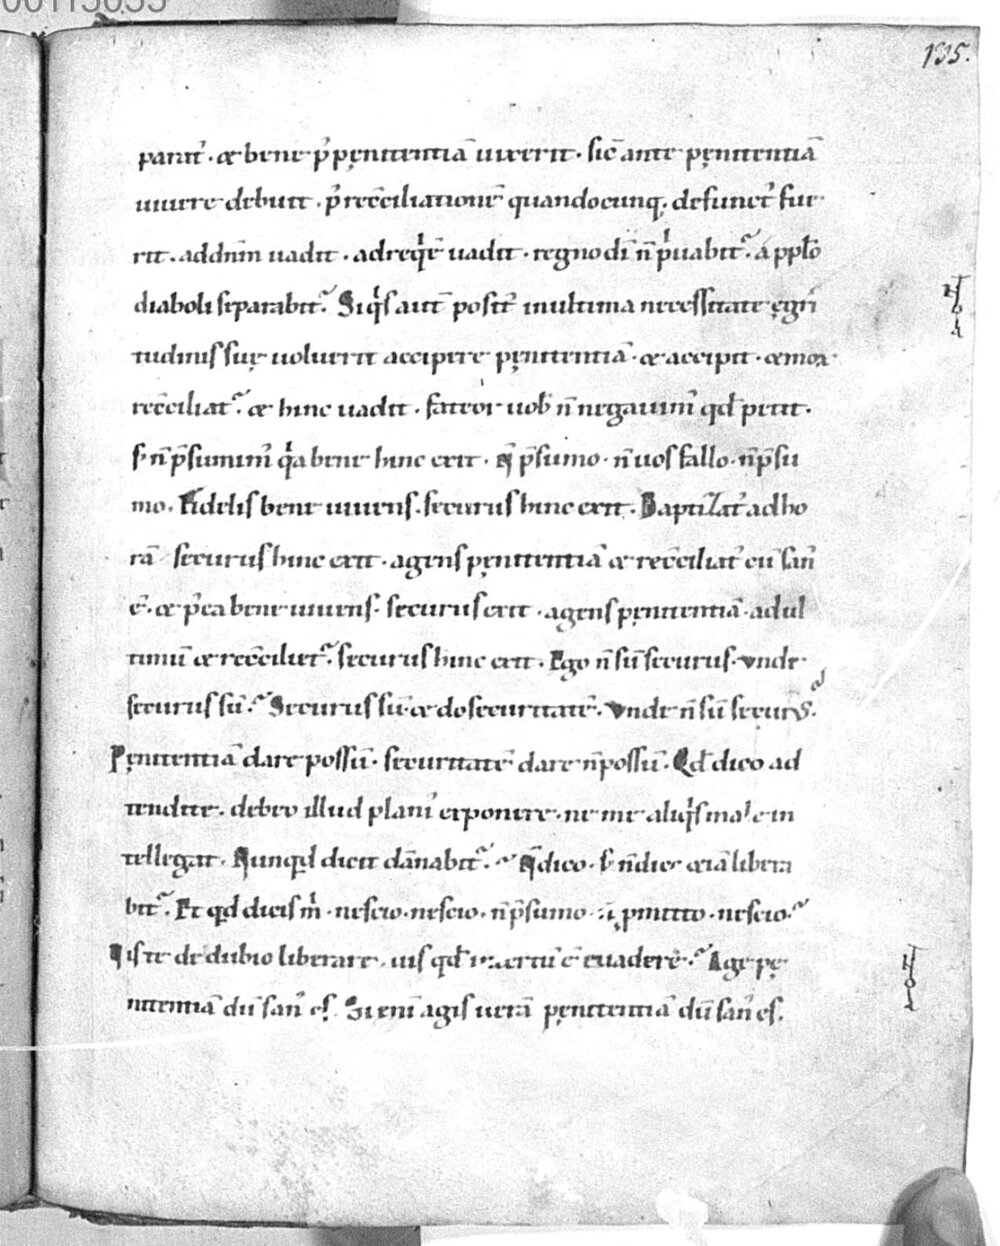 00115055
135.
parat᷒ · & bene p᷒ pęnitentiā uixerit · sic̄ ante pęnitentiā
uiuere debuit · p᷒ rec̄ciliationē quandocunq; defunct᷒ fue
rit · ad dn̄m uadit · ad req̇ē uadit · regno dī n̄ ṗuabit᷒ · a pp̄lo
diaboli separabit᷒. Siq̇s aut̄ posit᷒ in ultima necessitate ęgri
tudinis suę uoluerit accipere pęnitentiā · & accipit · & mox
rec̄ciliat᷒ · & hinc uadit · fateor uob̄ n̄ negauim᷒ qd̄ petit ·
s; n̄ p̄sumim᷒ q̇a bene hinc exit · N̄ p̄sumo · n̄ uos fallo · n̄ p̄su
mo. Fidelis bene uiuens · securus hinc exit. Baptizat᷒ ad ho
rā securus hinc exit · agens pęnitentiā & rec̄ciliat᷒ cū san᷒
ē · & p᷒ea bene uiuens · securus exit · agens pęnitentiā · ad ul
timū & rec̄ciliet᷒ · securus hinc exit · Ego n̄ sū securus · vnde
securus sū · Securus sū · & do securitatē · Vnde n̄ sū secur᷒.
Pęnitentiā dare possū · securitatē dare n̄ possū · Qd̄ dico ad
tendite · debeo illud plani᷒ exponere · ne me aliq̇s male in
tellegat · Nunqd̄ dicit dānabit᷒ · N̄ dico · s; n̄ dico &iā libera
bit᷒. Et qd̄ dicis ṁ · nescio · nescio · n̄ p̄sumo · n̄ pmitto · nescio.
Uis te de dubio liberare · uis qd̄ incertū ē euadere · Age pę
nitentiā dū san᷒ es. Si enī agis uerā pęnitentiā dū san᷒ es.